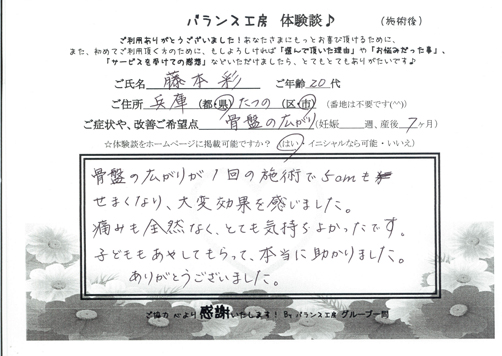 バランス工房 体験談♪ (施術後)
ご利用ありがとうございました!あなたさまにもっとお喜び頂けるために、
また、初めてご利用頂く方のために、もしよろしければ「選んで頂いた理由」や「お悩みだった事」、
「サービスを受けての感想」などいただけましたら、とてもとてもありがたいです♪
ご氏名 藤本 彩 ご年齢 20代
ご住所 兵庫 (都・県) たつの (区・市) (番地は不要です(^^)
ご症状や、改善ご希望点 骨盤の広がり (妊娠 週、産後 7ヶ月)
☆体験談をホームページに掲載可能ですか? (はい・イニシャルなら可能・いいえ)
骨盤の広がりが1回の施術で5cmも
せまくなり、大変効果を感じました。
痛みも全然なく、とても気持ちよかったです。
子どももあやしてもらって、本当に助かりました。
ありがとうございました。
ご協力 心より感謝いたします! By バランス工房 グループ一同